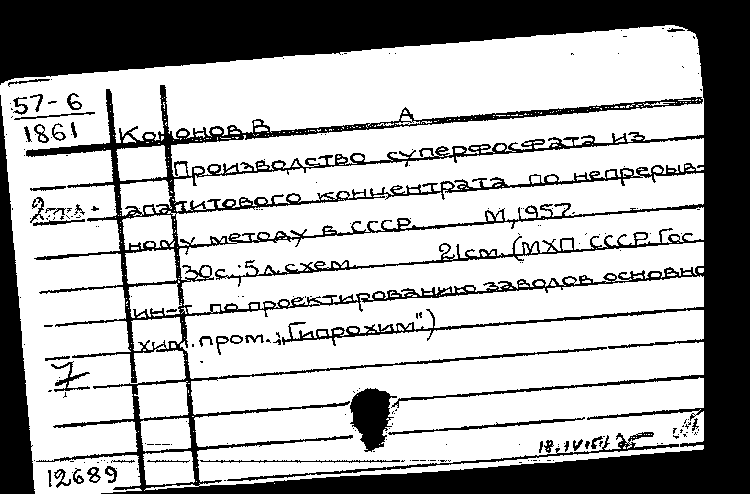 57-6
1861
Кононов, В А
Производство суперфосфата из
2 экз.
апатитового концентрата по непрерыв-
ному методу в СССР. М, 1957.
30с.; 5 л. схем. 21см. (МХП. СССР. Гос.
ин-т по проектированию заводов основно
хим. пром. „Гипрохим".)
7
12689